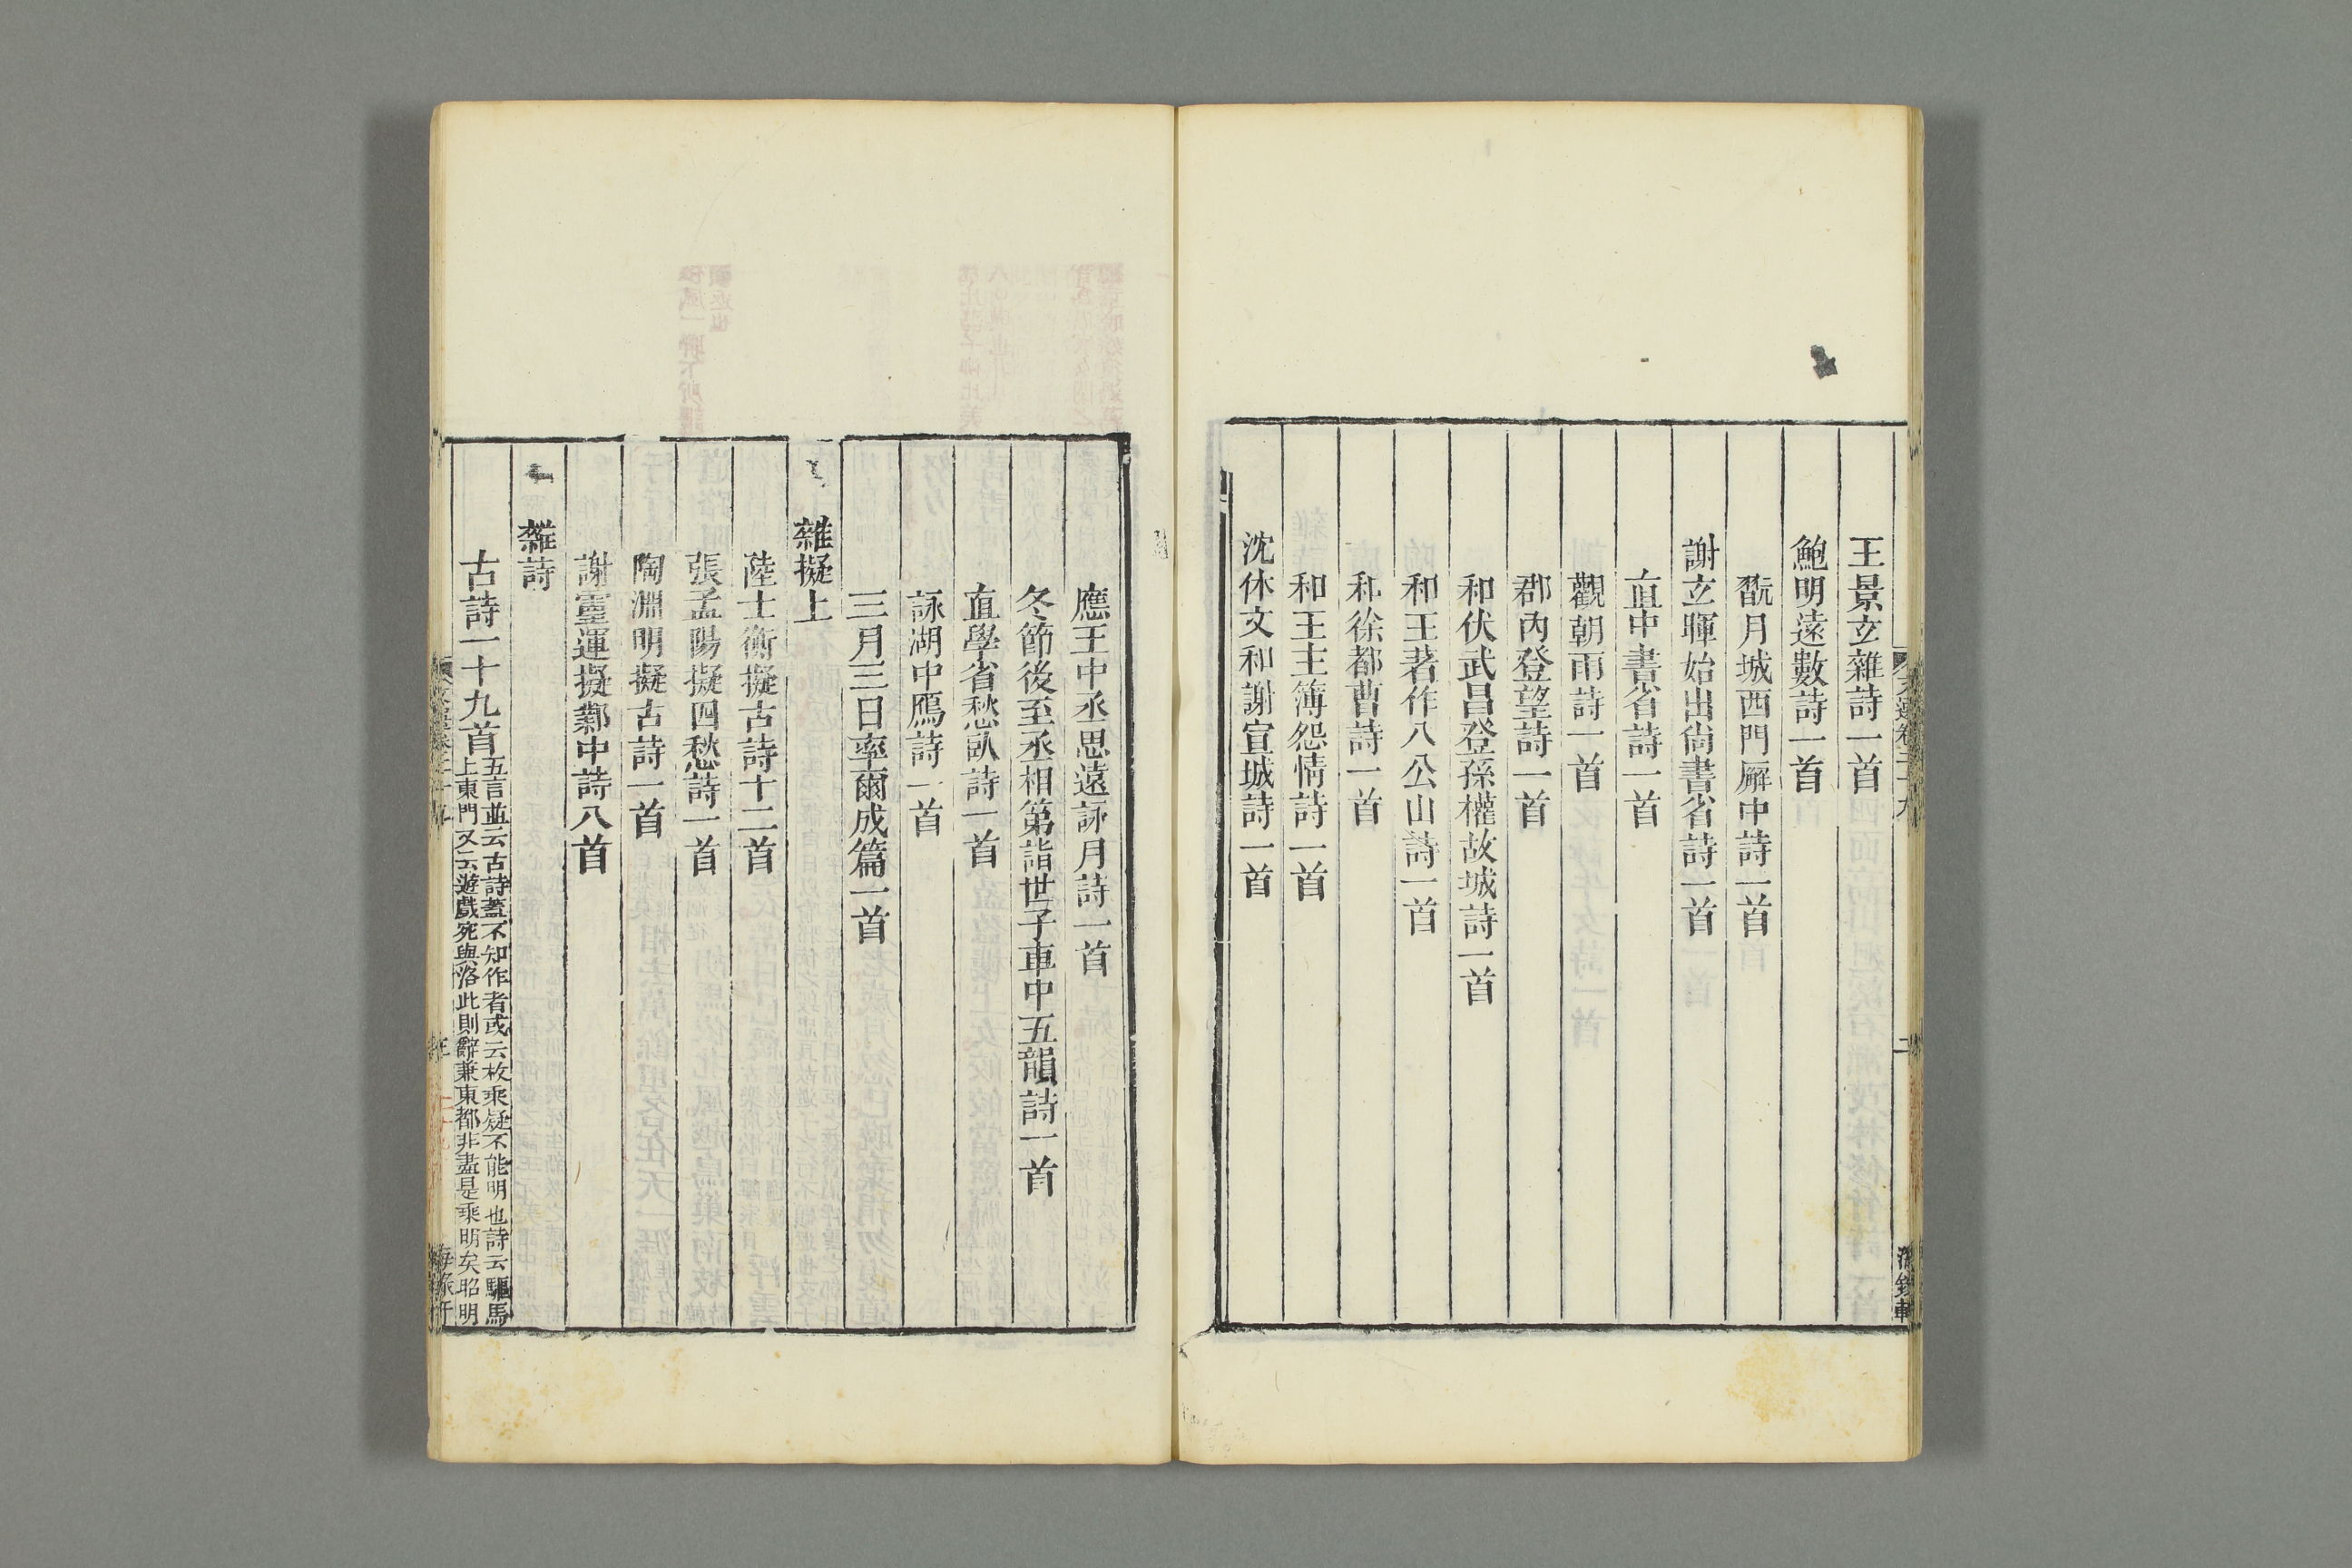 王景玄雜詩一首
鮑明遠數詩一首
翫月城西門廨中詩一首
謝玄暉始出尙書省詩一首
直中書省詩一首
觀朝雨詩一首
郡內登望詩一首
和伏武昌登孫權故城詩一首
和王著作八公山詩一首
和徐都曹詩一首
和王主簿怨情詩一首
沈休文和謝宣城詩一首
應王中丞思遠詠月詩一首
冬節後至丞相第詣世子車中五韻詩一首
直學省愁臥詩一首
詠湖中鴈詩一首
三月三日率爾成篇一首
雜擬上
陸士衡擬古詩十二首
張孟陽擬四愁詩一首
陶淵明擬古詩一首
謝靈運擬鄴中詩八首
雜詩
古詩一十九首五言並云古詩蓋不知作者或云枚乘疑不能明也詩云驅馬
上東門又云遊戲宛與洛此則辭兼東都非盡是乘明矣昭明